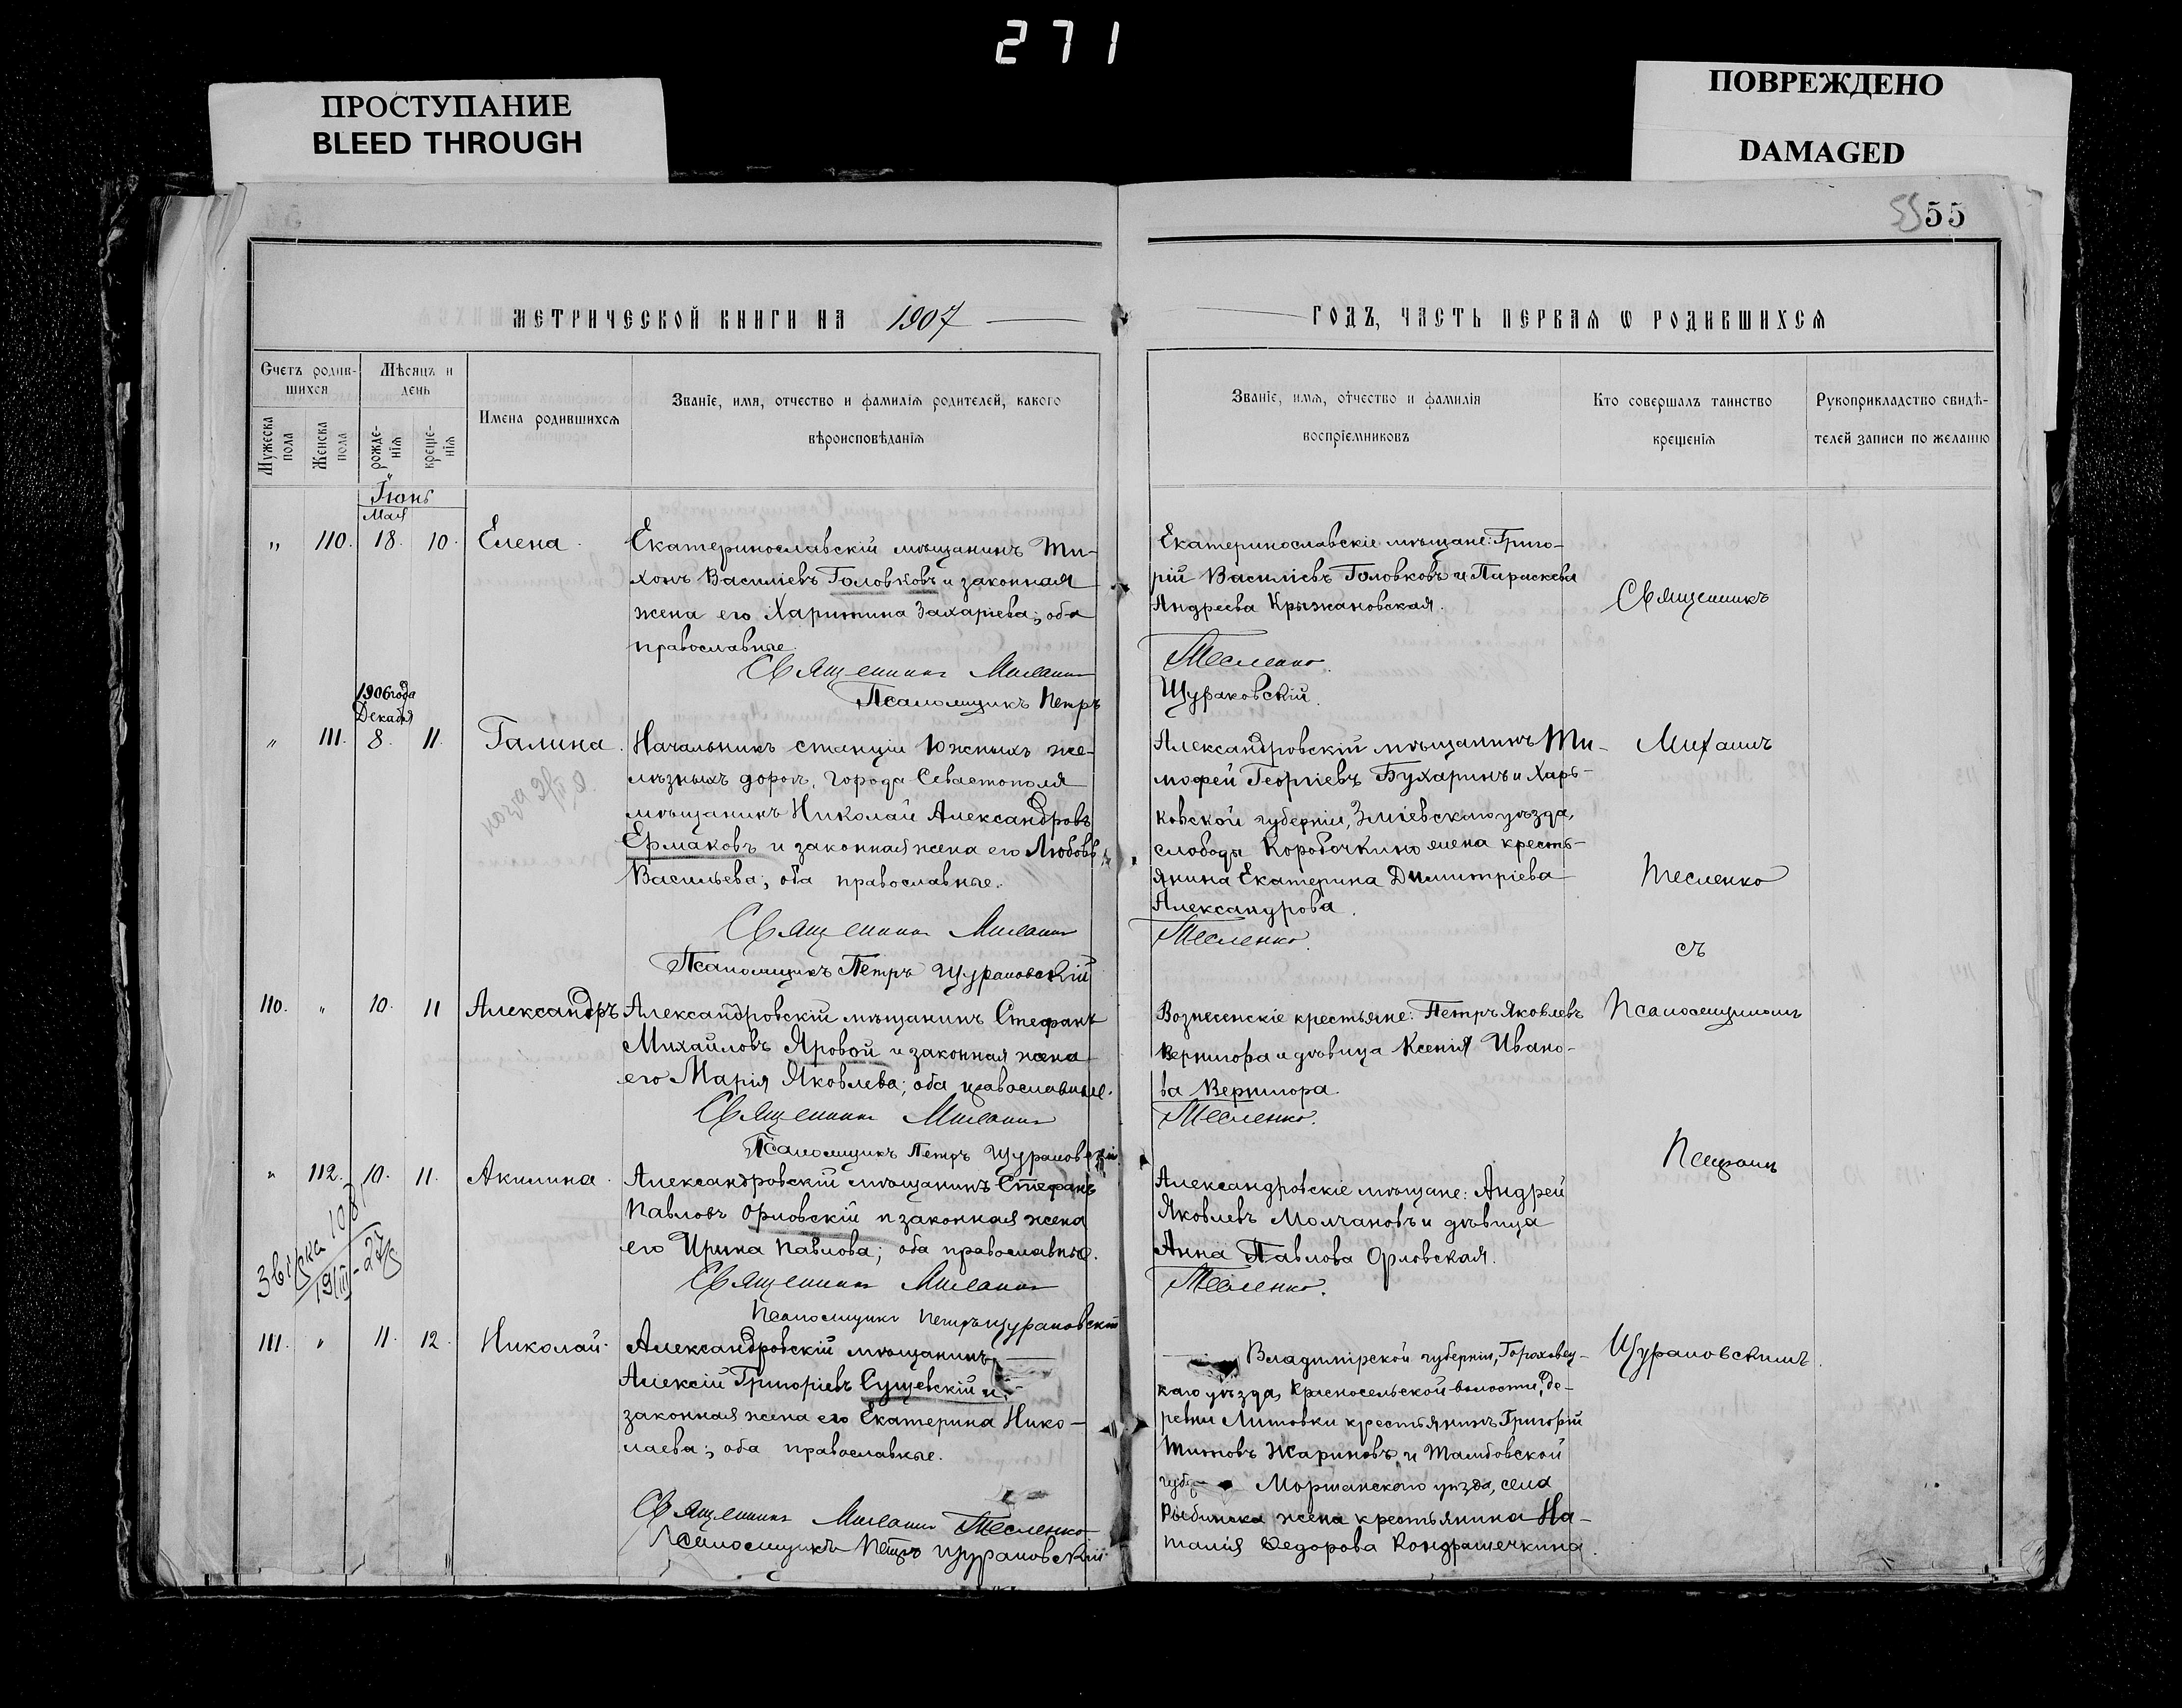 271
ПРОСТУПАНИЕ
BLEED THROUGH
ПОВРЕЖДЕНО
DAMAGED
55 55
МЕТРИЧЕСКОЙ КНИГИ НА 1907
ГОДЪ, ЧАСТЬ ПЕРВАЯ Ѡ РОДИВШИХСЯ
Счетъ родив-
шихся
Мѣсяцъ и
день
Мужеска
пола
Женска
пола
рожде-
нія
креще-
нія
Имена родившихся
Званіе, имя, отчество и фамилія родителей, какого
вѣроисповѣданія
Званіе, имя, отчество и фамилія
воспріемниковъ
Кто совершалъ таинство
крещенія
Рукоприкладство свидѣ-
телей записи по желанію
Іюнь
Мая
" 110. 18. 10. Елена.
Екатеринославскій мѣщанинъ Ти-
хонъ Василіевъ Головковъ и законная
жена его Харитина Захаріева; оба
православные.
Священникъ Михаилъ
Псаломщикъ Петръ
Екатеринославскіе мѣщане: Григо-
рій Василіевъ Головковъ и Параскева
Андреева Крыжановская.
Тесленко.
Щураковскій.
Священникъ
1906 года
Декабря
" 111. 8. 11. Галина.
Начальникъ станціи Южныхъ же-
лѣзныхъ дорогъ, города Севастополя
мѣщанинъ Николай Александровъ
Ермаковъ и законная жена его Любовь
Васильева; оба православные.
Священникъ Михаилъ
Псаломщикъ Петръ Щураковскій
Александровскій мѣщанинъ Ти-
мофей Георгіевъ Бухаринъ и Харь-
ковской губерніи, Зміевскаго уѣзда,
слободы Коробочкино жена кресть-
янина Екатерина Димитріева
Александрова.
Тесленко.
Михаилъ
Тесленко
съ
110. " 10. 11 Александръ
Александровскій мѣщанинъ Стефанъ
Михайловъ Яровой и законная жена
его Марія Яковлева; оба православные.
Священникъ Михаилъ
Псаломщикъ Петръ Щураковскій
Вознесенскіе крестьяне: Петръ Яковлевъ
Вернигора и дѣвица Ксенія Ивано-
ва Вернигора.
Тесленко.
Псаломщикомъ
Петромъ
" 112. 10. 11. Акилина.
Александровскій мѣщанинъ Стефанъ
Павловъ Орловскій и законная жена
его Ирина Павлова; оба православные.
Священникъ Михаилъ
Псаломщикъ Петръ Щураковскій
Александровскіе мѣщане: Андрей
Яковлевъ Молчановъ и дѣвица
Анна Павлова Орловская.
Тесленко.
111. " 11. 12. Николай.
Александровскій мѣщанинъ
Алексій Григоріевъ Сущевскій и
законная жена его Екатерина Нико-
лаева; оба православные.
Священникъ Михаилъ Тесленко
Псаломщикъ Петръ Щураковскій
Владимірской губерніи, Гороховец-
каго уѣзда, Красносельской волости, де-
ревни Литовки крестьянинъ Григорій
Титовъ Жариновъ и Тамбовской
губ. Моршанскаго уѣзда, села
Рыбинска жена крестьянина На-
талія Ѳедорова Кондрашечкина.
Щураковскимъ.